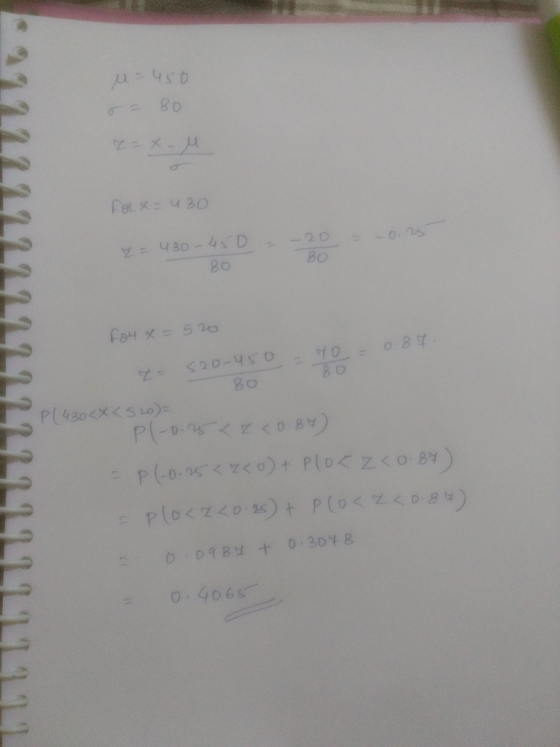 μ = 450
σ = 80
z = x - μ / σ
For x = 430
z = 430 - 450 / 80 = -20 / 80 = -0.25
For x = 520
z = 520 - 450 / 80 = 70 / 80 = 0.87.
P(430<x<520)=
P(-0.25 < z < 0.87)
= P(-0.25 < z < 0) + P(0 < z < 0.87)
= P(0 < z < 0.25) + P(0 < z < 0.87)
= 0.0987 + 0.3078
= 0.4065